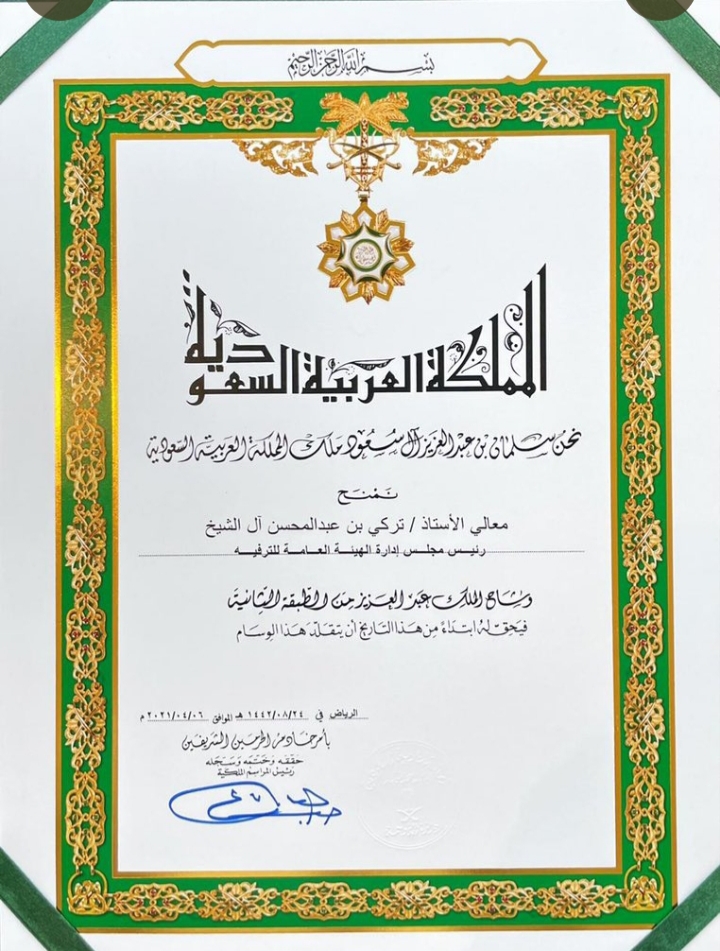 بسم الله الرحمن الرحيم
المملكة العربية السعودية
نحن سلمان بن عبدالعزيز آل سعود ملك المملكة العربية السعودية
نمنح
معالي الأستاذ / تركي بن عبدالمحسن آل الشيخ
رئيس مجلس إدارة الهيئة العامة للترفيه
وشاح الملك عبدالعزيز من الطبقة الثانية
فيحق له ابتداءً من هذا التاريخ أن يتقلد هذا الوسام
الرياض في ١٤٤٢/٠٨/٢٤ هـ الموافق ٢٠٢١/٠٤/٠٦ م
بأمر خادم الحرمين الشريفين
حققه وختمه وسجله
رئيس المراسم الملكية